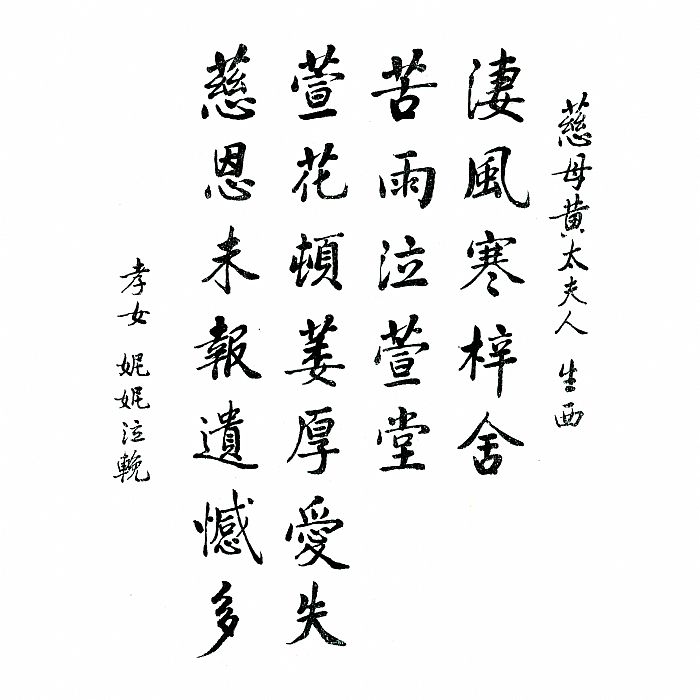 慈母黃太夫人 生西
淒風寒梓舍
苦雨泣萱堂
萱花頓萎厚愛失
慈恩未報遺憾多
孝女 妮妮泣輓